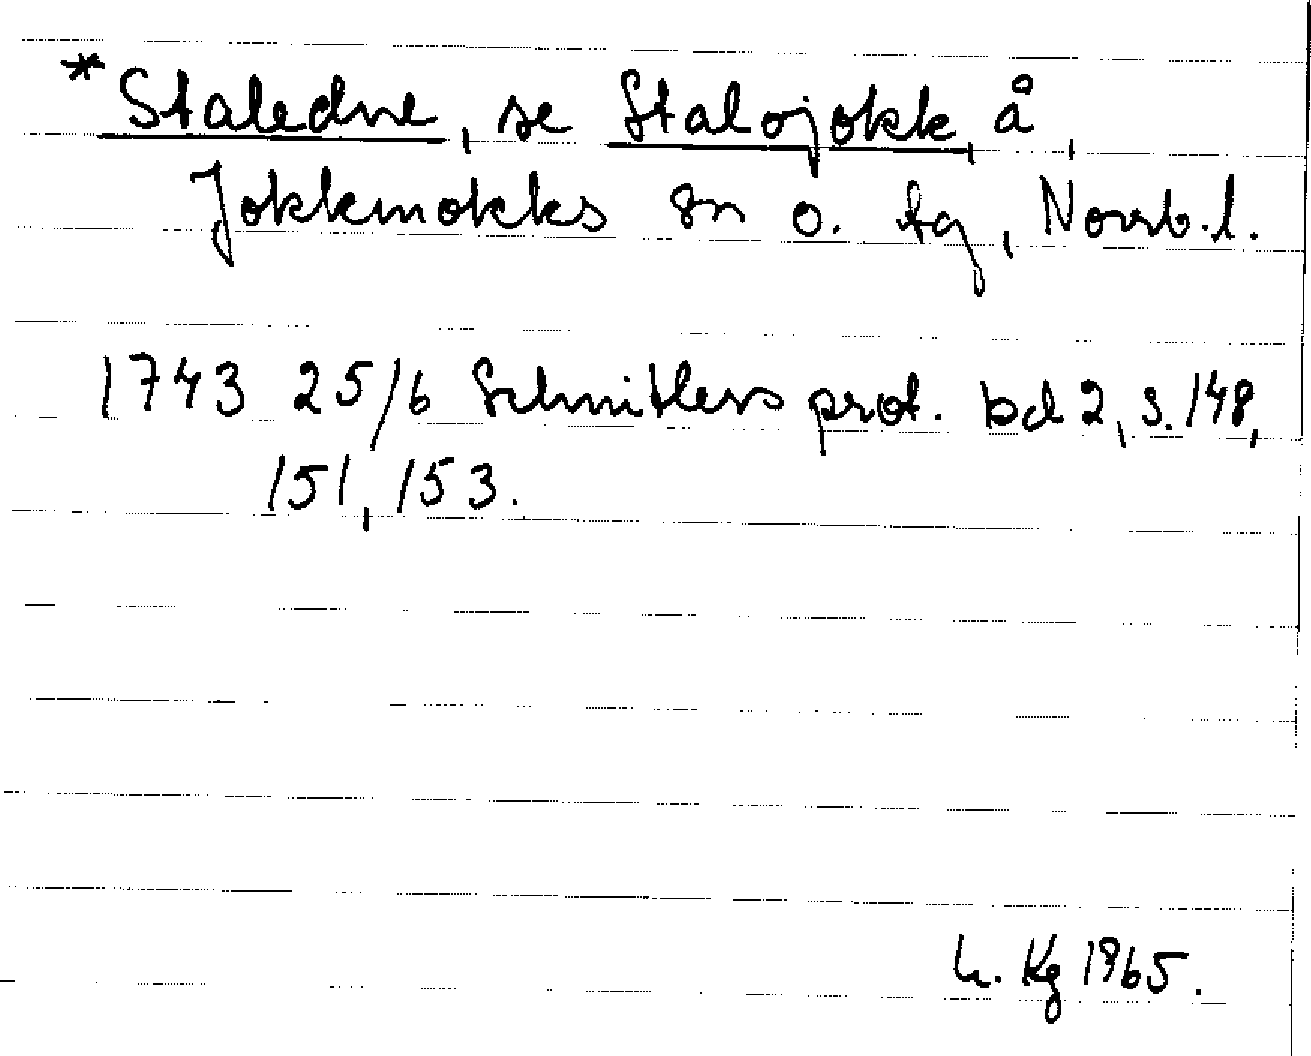 *Staledne, se Stalojokk, å,
Jokkmokks sn o. tg, Norrb.l.
1743 25/6 Schnitlers prot. bd 2, s. 148,
151, 153.
Kg 1965.